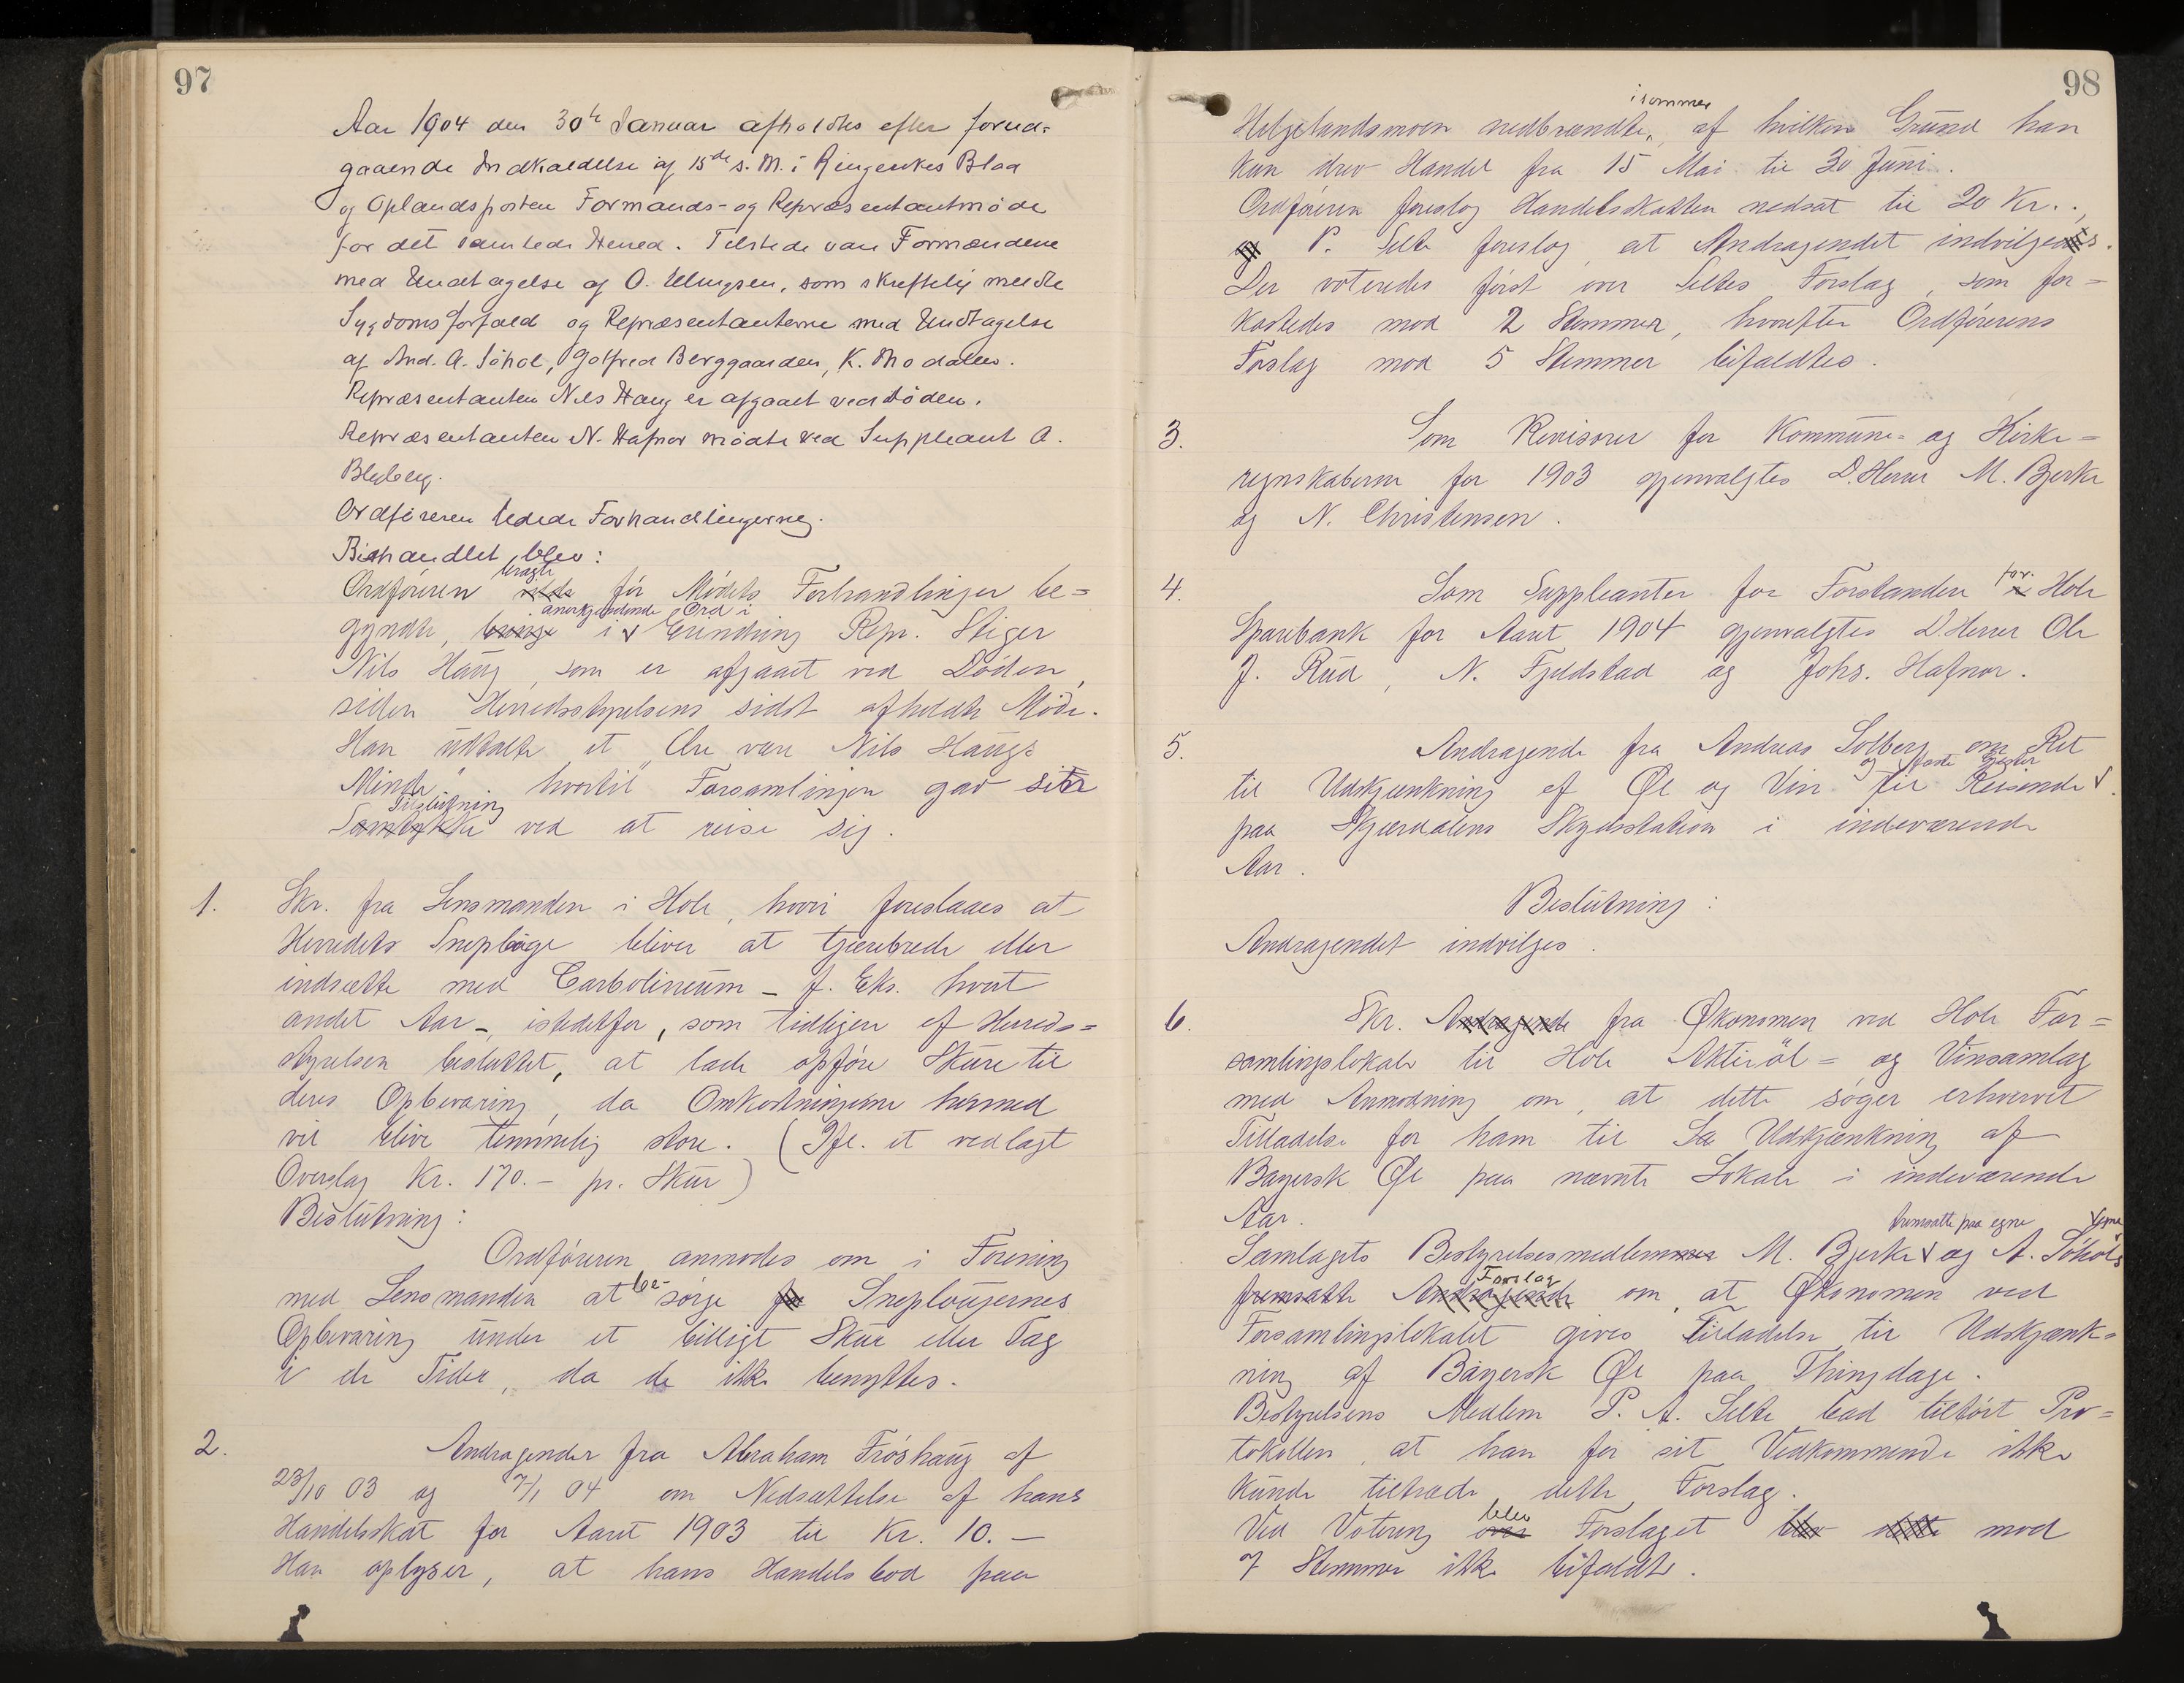 97
Aar 1904 den 30te Januar afholdtes efter forud-
gaaende Indkaldelse af 15de s. M. i Ringerikes Blad
og Oplandsposten Formands- og Repræsentantmøde
for det samlede Herred. Tilstede vare Formændene
med Undtagelse af O. Ulrigsen, som skriftelig meldte
Sygdomsforfald og Repræsentanterne med Undtagelse
af And. A. Søhol, Golfred Berggaarden, K. Modalen.
Repræsentanten Nils Haug er afgaaet ved Døden.
Repræsentanten N. Hafnor mødte ved Suppleant A.
Blyberg.
Ordføreren ledede Forhandlingerne.
Behandlet blev:
Ordføreren bragte før Mødets Forhandlinger be=
gyndte, anerkjendende Ord i Erindring Repr. Stiger
Nils Haug, som er afgaaet ved Døden,
siden Herredsstyrelsens sidst afholdte Møde.
Han udtalte et "Ære være Nils Haugs
Minde", hvortil Forsamlingen gav sin
Tilslutning ved at reise sig.
1. Skr. fra Lensmanden i Hole, hvori foreslaaes at
Herredets Sneploge bliver at tjærebrede eller
indsætte med Carbolineum – f. Eks. hvert
andet Aar –, istedetfor, som tidligere af Herreds=
styrelsen besluttet, at lade opføre Skure til
deres Opbevaring, da Omkostningerne hermed
vil blive temmelig store. (Jfr. et vedlagt
Overslag Kr. 170.- pr. Skur)
Beslutning:
Ordføreren anmodes om i Forening
med Lensmanden at besørge Sneplougernes
Opbevaring under et billigt Skur eller Tag
i de Tider, da de ikke benyttes.
2. Andragender fra Abraham Frøshaug af
23/10 03 og 7/1 04 om Nedsættelse af hans
Handelsskat for Aaret 1903 til Kr. 10.—
Han oplyser, at hans Handelsbod paa
98
Helgelandsmoen nedbrændte i sommer, af hvilken Grund han
kun drev Handel fra 15 Mai til 30 Juni.
Ordføreren foreslog Handelsskatten nedsat til 20 Kr.,
P. Selte foreslog, at Andragendet indvilges.
Der voteredes først over Seltes Forslag, som for=
kastedes mod 2 Stemmer, hvorefter Ordførerens
Forslag mod 5 Stemmer bifaldtes.
3. Som Revisorer for Kommune- og Kirke=
regnskaberne for 1903 gjenvalgtes D'Herrer M. Bjerke
og N. Christensen.
4. Som Suppleanter for Forstanden for Hole
Sparebank for Aaret 1904 gjenvalgtes D'Herrer Ole
J. Rud, N. Fjeldstad og Johs. Hafnor.
5. Andragende fra Andreas Solberg om Ret
til Udskjænkning af Øl og Vin til Reisende og faste Gjester
paa Skjærdalens Skydsstation i indeværende
Aar.
Beslutning:
Andragendet indvilges.
6. Skr. Andragende fra Økonomen ved Hole For=
samlingslokale til Hole Aktieøl= og Vinsamlag
med Anmodning om, at dette søger erhvervet
Tilladelse for ham til Udskjænkning af
Bayersk Øl paa nævnte Lokale i indeværende
Aar.
Samlagets Bestyrelsesmedlemmer M. Bjerke og A. Søhols fremsatte paa egne Vegne
Forslag om, at Økonomen ved
Forsamlingslokalet gives Tilladelse til Udskjænk=
ning af Bayersk Øl paa Thingdage.
Bestyrelsens Medlem P. A. Selte bad tilført Pro=
tokollen, at han for sit Vedkommende ikke
kunde tiltræde dette Forslag.
Ved Votering blev Forslaget mod
7 Stemmer ikke bifaldt.